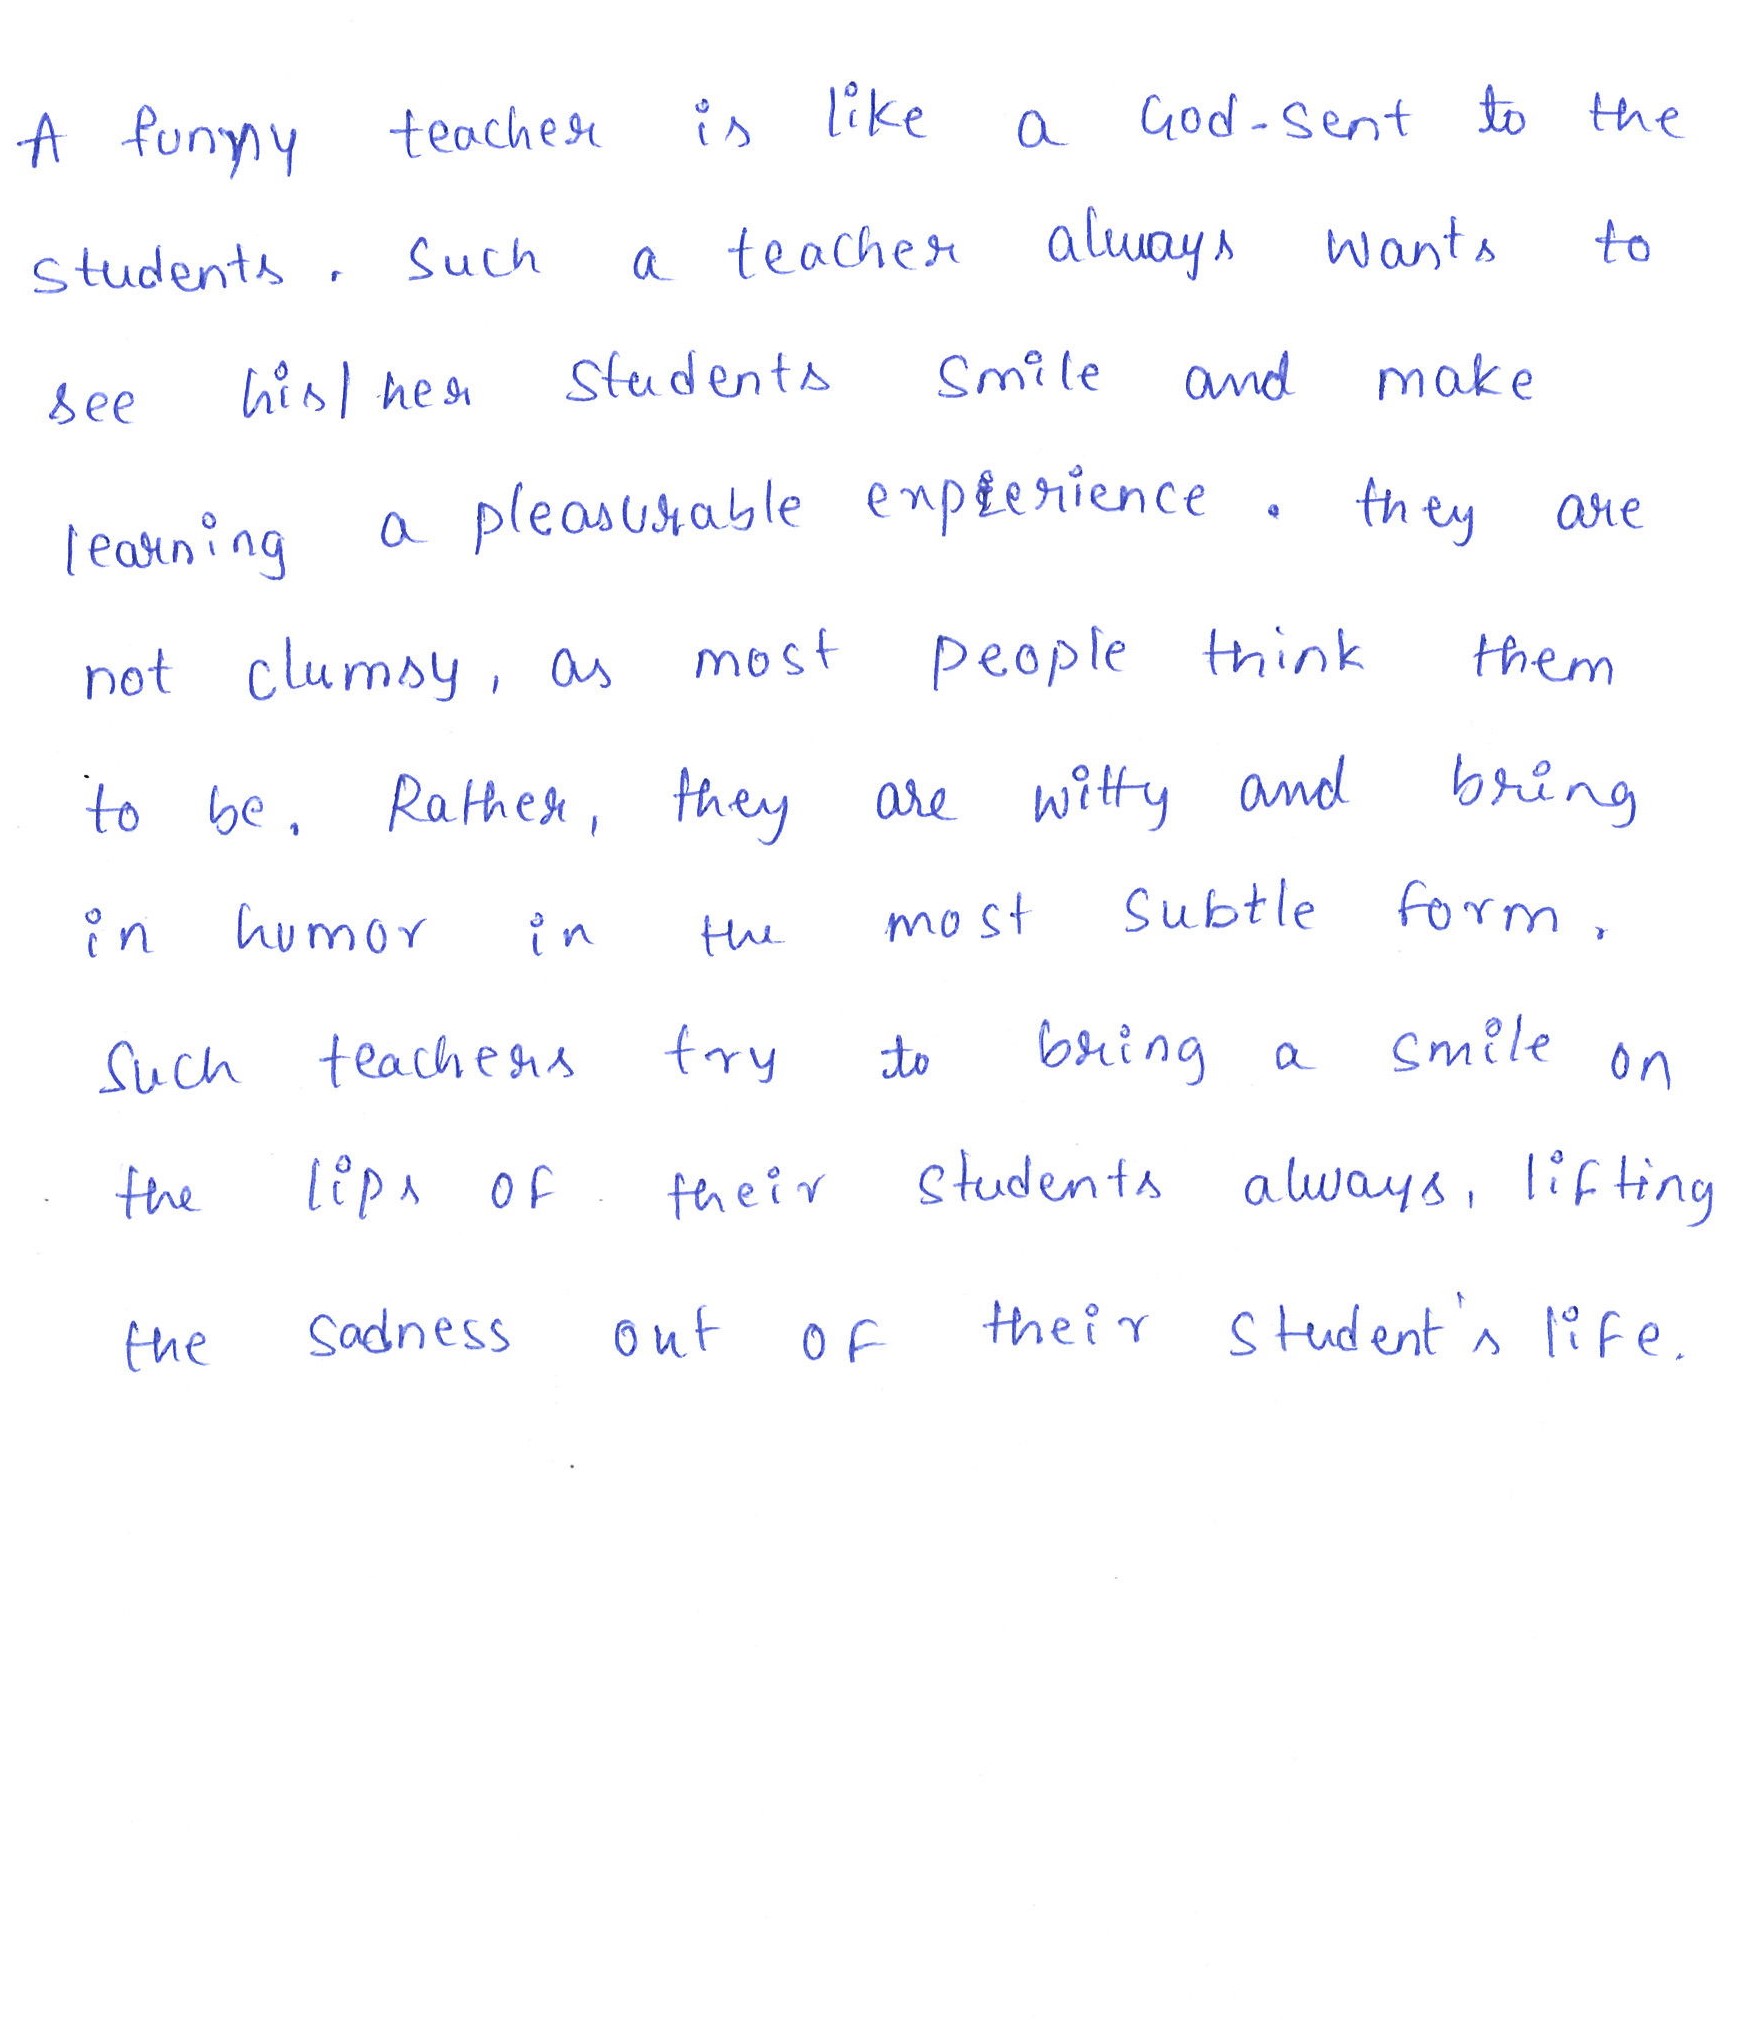 A funny teacher is like a God-sent to the
students. Such a teacher always wants to
see his/her students smile and make
learning a pleasurable experience. they are
not clumsy, as most people think them
to be. Rather, they are witty and bring
in humor in the most subtle form.
Such teachers try to bring a smile on
the lips of their students always, lifting
the sadness out of their student's life.